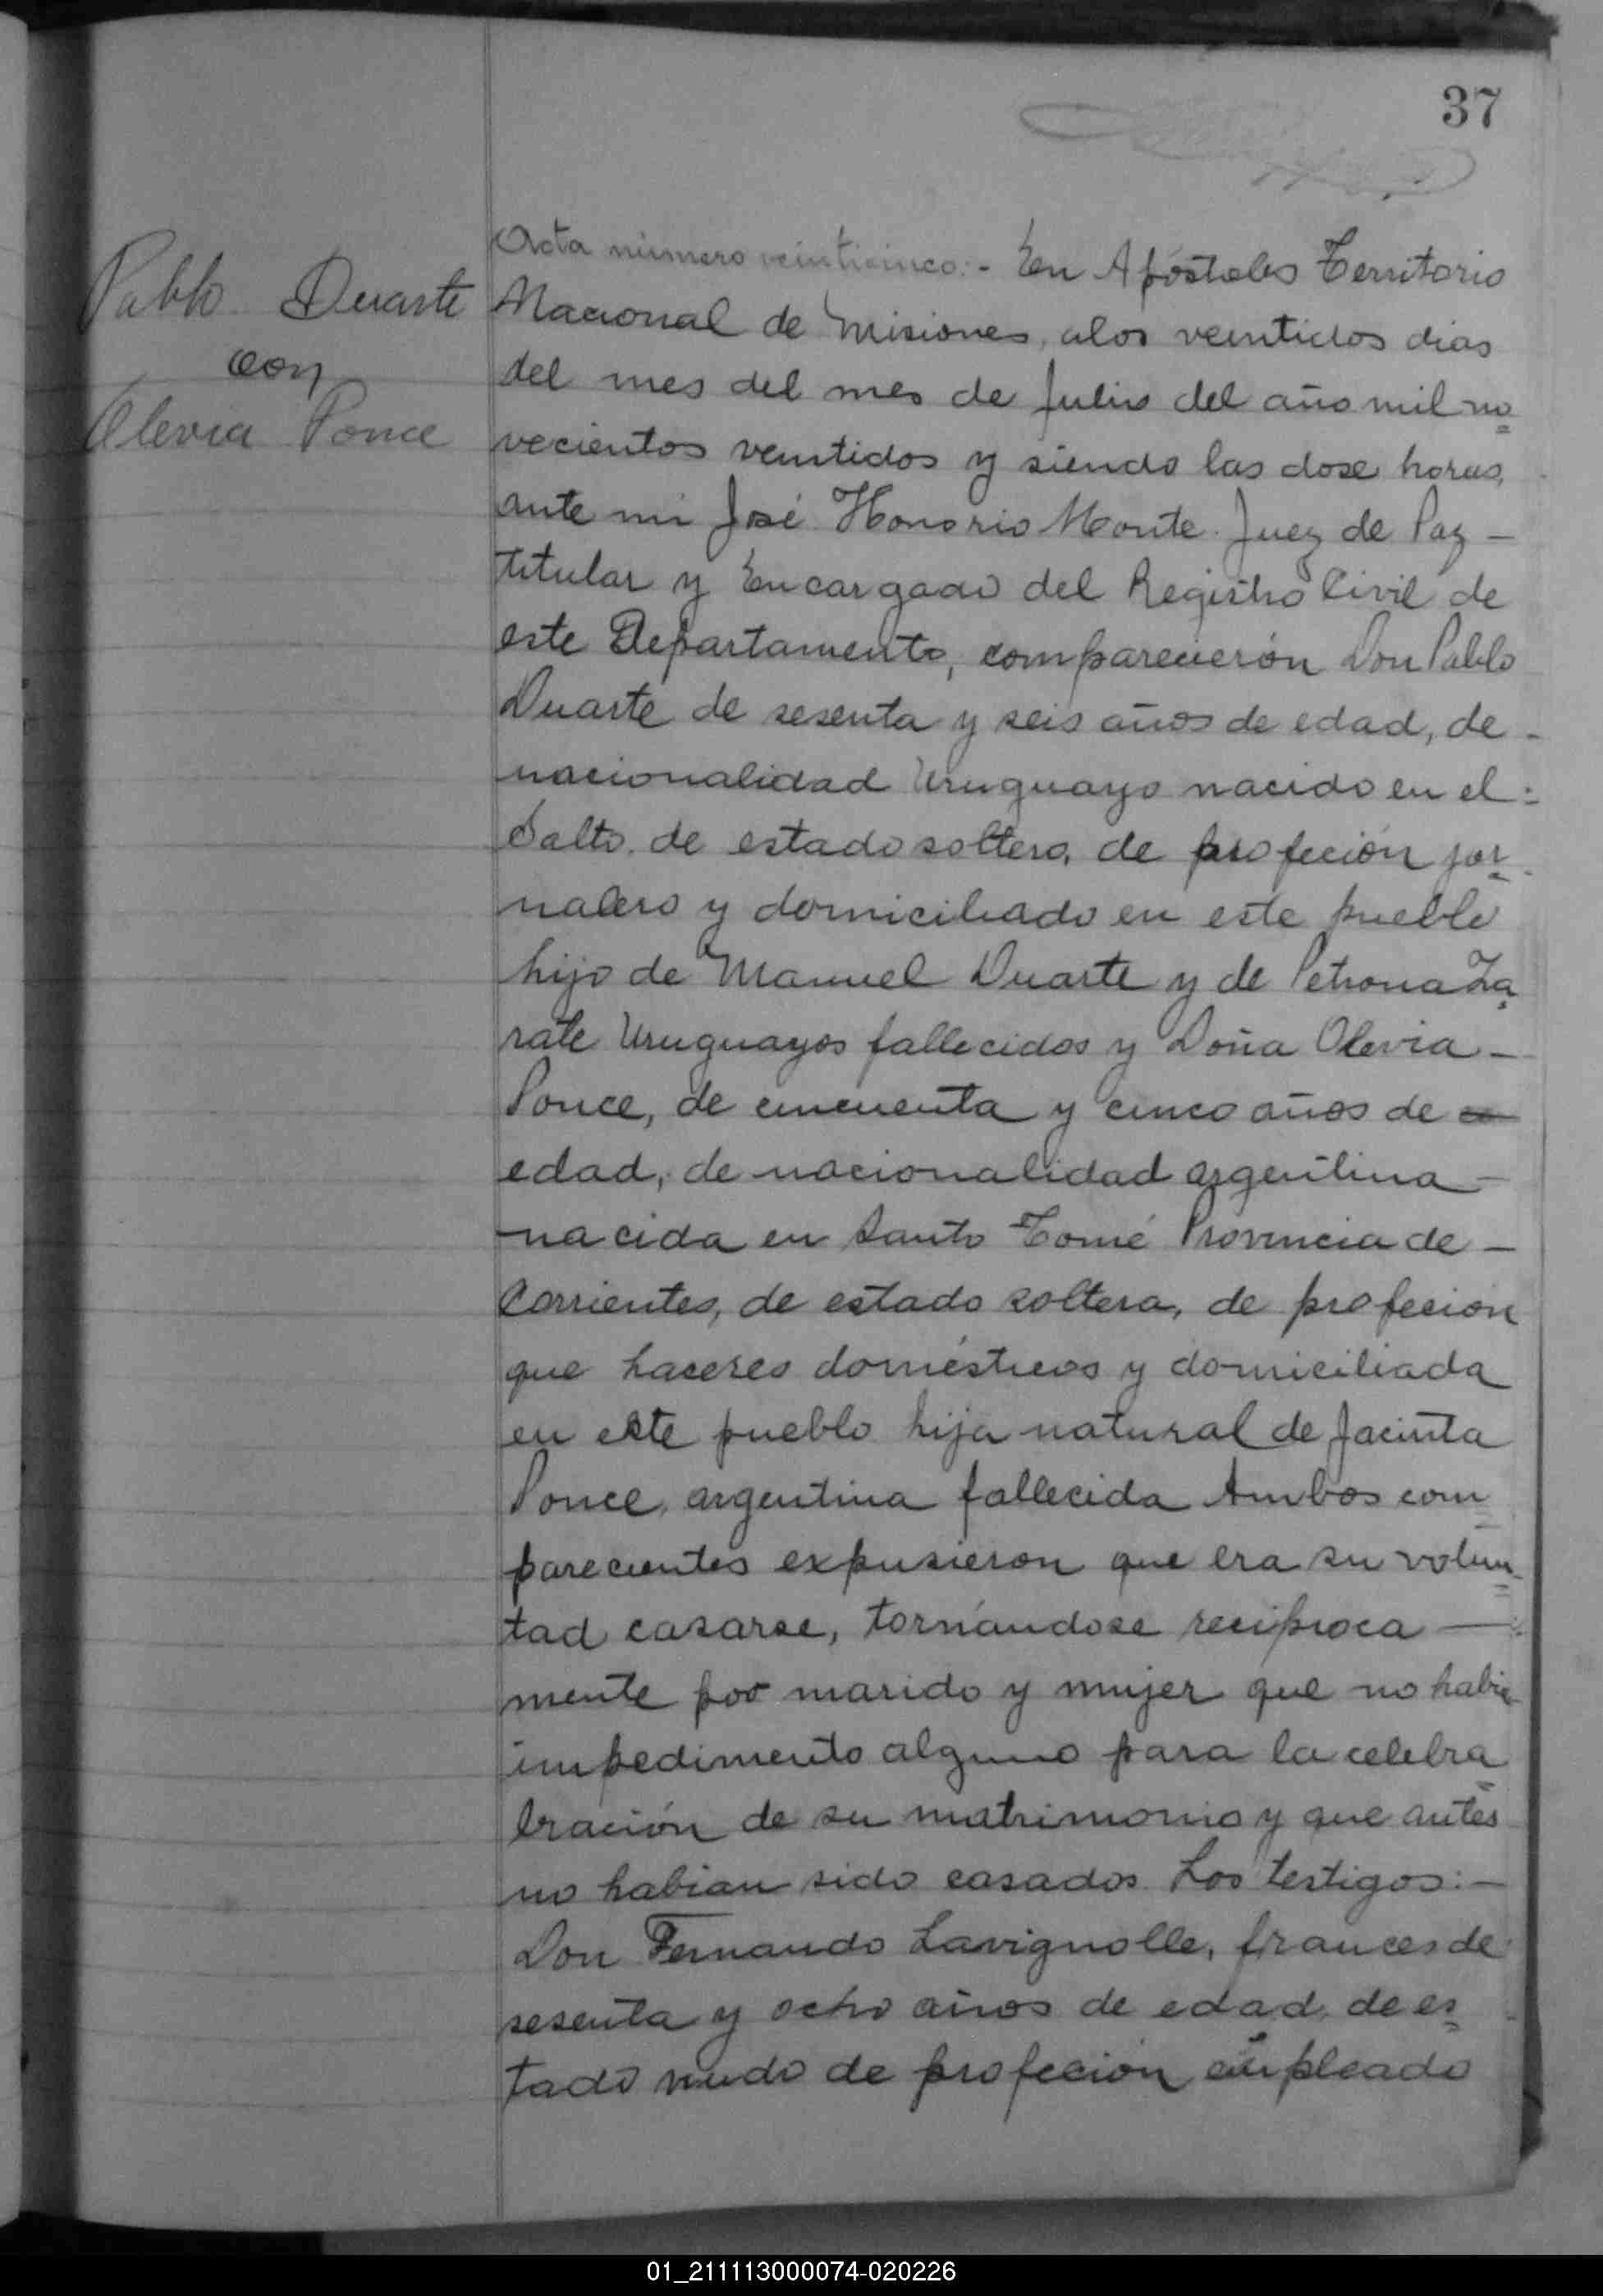 37
Pablo Duarte
con
Olevia Ponce
Acta número veinticinco:- En Apóstoles Territorio
Nacional de Misiones, alos veintidos dias
del mes del mes de Julio del año mil no
vecientos ventidos y siendo las dose horas,
ante mi José Honorio Monte Juez de Paz -
titular y Encargado del Registro Civil de
este Departamento, comparecierón Don Pablo
Duarte de sesenta y seis años de edad, de -
nacionalidad Uruguayo nacido en el:
Salto. de estado soltero, de profeción jor
nalero y domiciliado en este pueblo
hijo de Manuel Duarte y de Petrona Za
rate Uruguayos fallecidos y Doña Olevia -
Ponce, de cincuenta y cinco años de
edad, de nacionalidad argentina -
nacida en Santo Tomé Provincia de -
Corrientes, de estado soltera, de profeción
que haceres domésticos y domiciliada
en este pueblo hija natural de Jacinta
Ponce, argentina fallecida Ambos com
parecientes expusieron que era su volun
tad casarse, tornándose reciproca —
mente por marido y mujer que no habia
impedimento alguno para la celebra
bración de su matrimonio y que antes
no habian sido casados. Los testigos:-
Don Fernando Lavignolle, frances de
sesenta y ocho años de edad, de es
tado viudo de profeción empleado
01_211113000074-020226